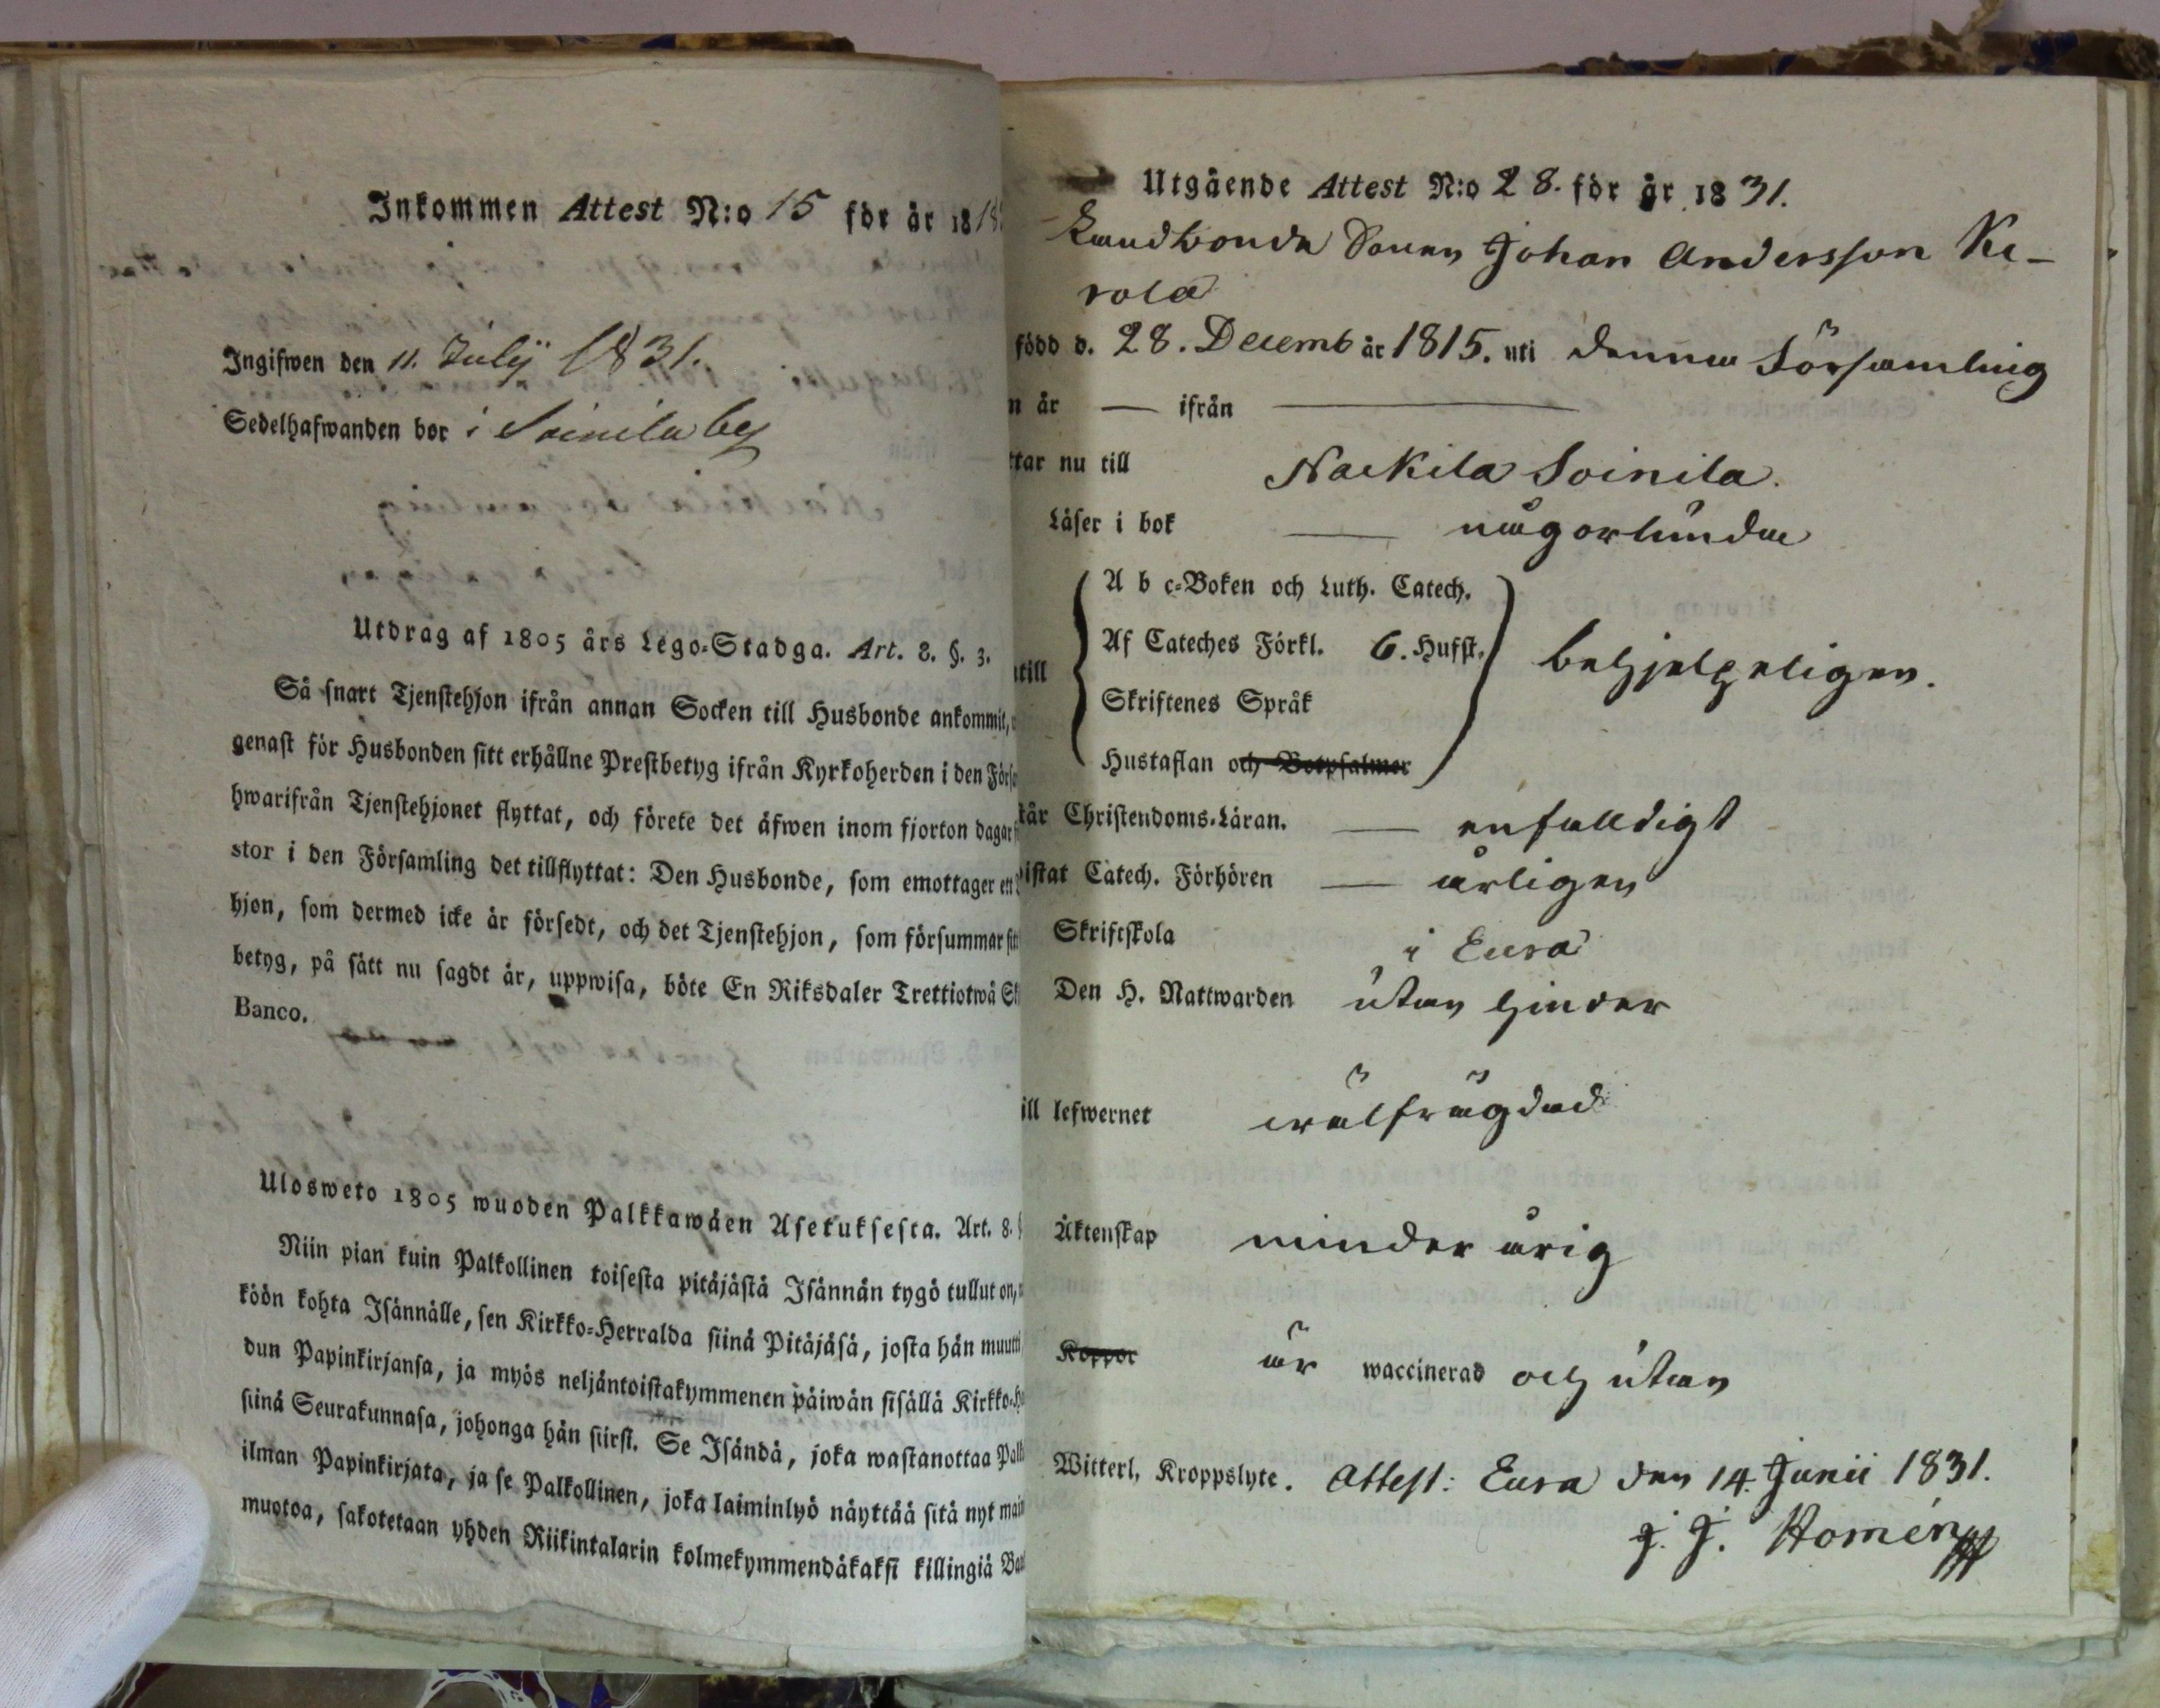 Inkommen Attest N:o 15 för år 18
Ingifwen den 11. Julÿ 1831.
Sedelhafwanden bor i Soinila by
Utdrag af 1805 års Lego-Stadga. Art. 8. §. 3.
Så snart Tjenstehjon ifrån annan Socken till Husbonde ankommit,
genast för Husbonden sitt erhållne Prestbetyg ifrån Kyrkoherden i den Förs
hwarifrån Tjenstehjonet flyttat, och förete det äfwen inom fjorton dagar
stor i den Församling det tillflyttat: Den Husbonde, som emottager ett
hjon, som dermed icke är försedt, och det Tjenstehjon, som försummar sitt
betyg, på sätt nu sagdt är, uppwisa, böte En Riksdaler Trettiotwå Sk
Banco.
Ulosweto 1805 wuoden Palkkawäen Asetuksesta. Art. 8. §
Niin pian kuin Palkollinen toisesta pitäjästä Isännän tygö tullut on,
köön kohta Isännälle, sen Kirkko-Herralda siinä Pitäjäsä, josta hän muutti
dun Papinkirjansa, ja myös neljäntoistakymmenen päiwän sisällä Kirkko-H
siinä Seurakunnasa, johonga hän siirst. Se Isändä, joka wastanottaa Palk
ilman Papinkirjata, ja se Palkollinen, joka laiminlyö näyttää sitä nyt main
muotoa, sakotetaan yhden Riikintalarin kolmekymmendäkaksi killingiä Ban
Utgående Attest N:o 28. för år 1831.
Landbonde Sonen Johan Andersson Ke-
rola
född d. 28. Decemb år 1815. uti denna Församling
n år — ifrån —
ttar nu till Nackila Soinila.
Läser i bok — någorlunda
A b c-Boken och Luth. Catech.
Af Cateches Förkl. 6. Hufst.
ntill behjelpeligen.
Skriftenes Språk
Hustaflan och Botpsalmer
tår Christendoms-Läran. — enfaldigt
istat Catech. Förhören — årligen
Skriftskola i Eura
Den H. Nattwarden utan hinder
ill lefwernet wälfrägdad
Äktenskap minderårig
Koppor är waccinerad och utan
Witterl. Kroppslyte. Attest: Eura den 14. Junii 1831.
J. J. Homén